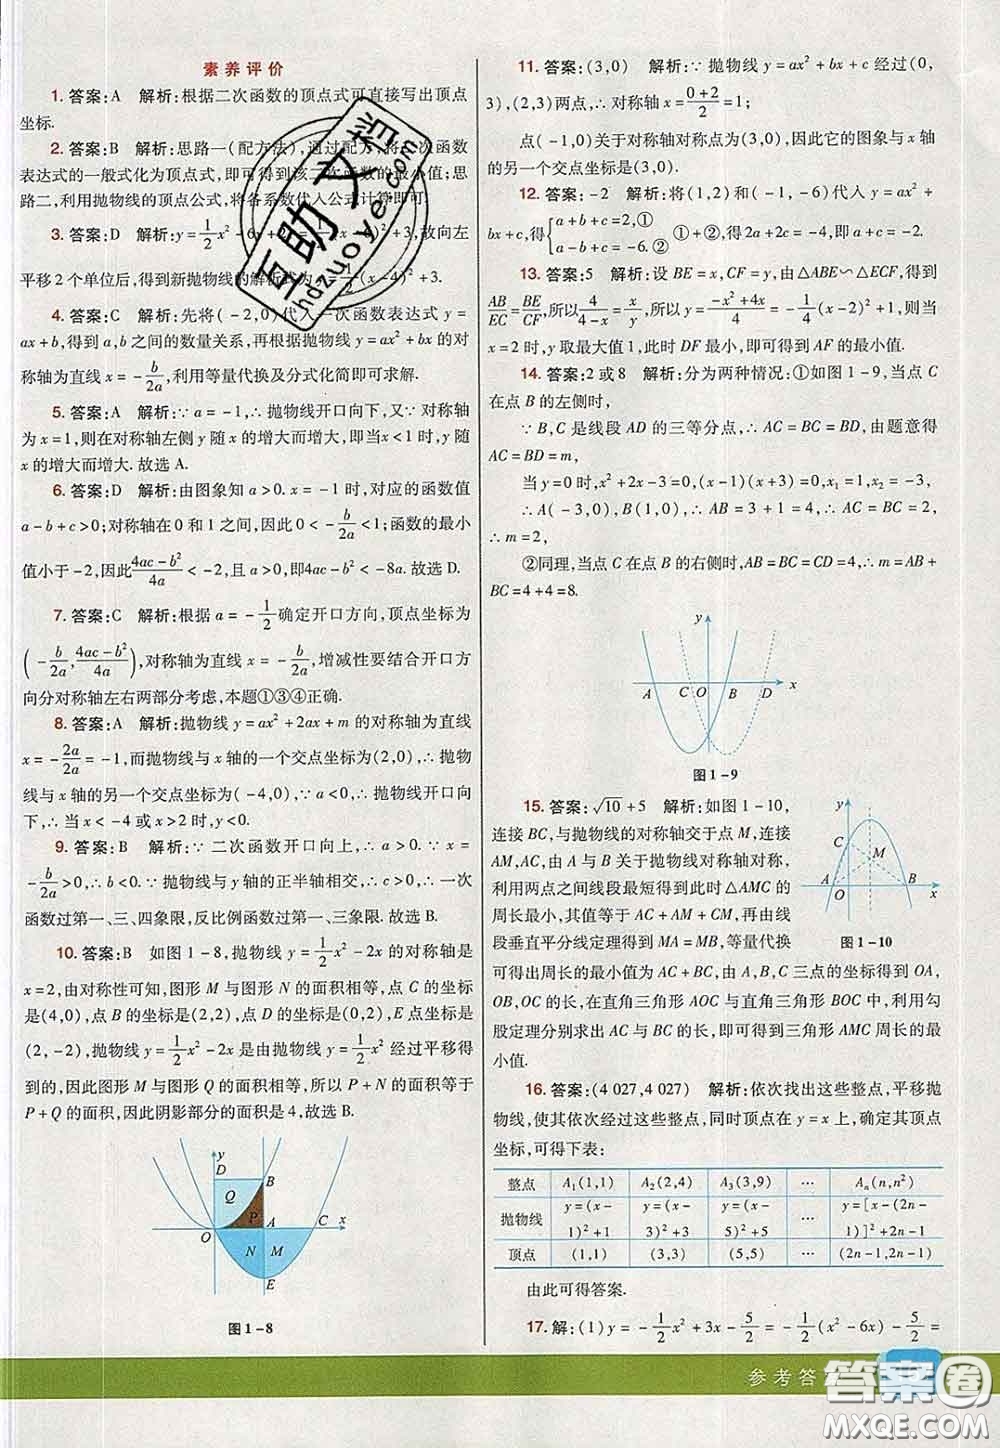 素养评价
1. 答案:A 解析:根据二次函数的顶点式可直接写出顶点
坐标.
2. 答案:B 解析:思路一(配方法),通过配方,将二次函数
表达式的一般式化为顶点式,即可得到该二次函数的最小值;思
路二,利用抛物线的顶点公式,将各系数代入公式计算即可.
3. 答案:D 解析:y=1/2x²-6x+
+3,故向左
平移2个单位后,得到新抛物线的解析式为y=1/2(x-4)²+3.
4. 答案:C 解析:先将(-2,0)代入一次函数表达式y=
ax+b,得到a,b之间的数量关系,再根据抛物线y=ax²+bx的对
称轴为直线x=-b/2a,利用等量代换及分式化简即可求解.
5. 答案:A 解析:∵a=-1,∴抛物线开口向下,又∵对称轴
为x=1,则在对称轴左侧y随x的增大而增大,即当x<1时,y随
x的增大而增大.故选A.
6. 答案:D 解析:由图象知a>0.x=-1时,对应的函数值
a-b+c>0;对称轴在0和1之间,因此0<-b/2a<1;函数的最小
值小于-2,因此(4ac-b²)/4a<-2,且a>0,即4ac-b²<-8a.故选D.
7. 答案:C 解析:根据a=-1/2确定开口方向,顶点坐标为
(-b/2a,(4ac-b²)/4a),对称轴为直线x=-b/2a,增减性要结合开口方
向分对称轴左右两部分考虑,本题①③④正确.
8. 答案:A 解析:抛物线y=ax²+2ax+m的对称轴为直线
x=-2a/2a=-1,而抛物线与x轴的一个交点坐标为(2,0),∴抛物
线与x轴的另一个交点坐标为(-4,0),∵a<0,∴抛物线开口向
下,∴当x<-4或x>2时,y<0.
9. 答案:B 解析:∵二次函数开口向上,∴a>0.∵x=
-b/2a>0,∴b<0,∵抛物线与y轴的正半轴相交,∴c>0,∴一次
函数过第一、三、四象限,反比例函数过第一、三象限.故选B.
10. 答案:B 如图1-8,抛物线y=1/2x²-2x的对称轴是
x=2,由对称性可知,图形M与图形N的面积相等,点C的坐标
是(4,0),点B的坐标是(2,2),点D的坐标是(0,2),E点坐标是
(2,-2),抛物线y=1/2x²-2x是由抛物线y=1/2x²经过平移得
到的,因此图形M与图形Q的面积相等,所以P+N的面积等于
P+Q的面积,因此阴影部分的面积是4,故选B.
y
D
B
Q
P
O
A
C
x
N
M
E
图1-8
11. 答案:(3,0) 解析:抛物线y=ax²+bx+c经过(0,
3),(2,3)两点,∴对称轴x=(0+2)/2=1;
点(-1,0)关于对称轴对称点为(3,0),因此它的图象与x轴
的另一个交点坐标是(3,0).
12. 答案:-2 解析:将(1,2)和(-1,-6)代入y=ax²+
bx+c,得{a+b+c=2,① a-b+c=-6.② ①+②,得2a+2c=-4,即a+c=-2.
13. 答案:5 解析:设BE=x,CF=y,由△ABE∽△ECF,得到
AB/EC=BE/CF,所以4/(4-x)=x/y,所以y=(-x²+4x)/4=-1/4(x-2)²+1,则当
x=2时,y取最大值1,此时DF最小,即可得到AF的最小值.
14. 答案:2或8 解析:分为两种情况:①如图1-9,当点C
在点B的左侧时,
∵B,C是线段AD的三等分点,∴AC=BC=BD,由题意得
AC=BD=m,
当y=0时,x²+2x-3=0,(x-1)(x+3)=0,x₁=1,x₂=-3,
∴A(-3,0),B(1,0),∴AB=3+1=4,∴AC=BC=2,
∴m=2,
②同理,当点C在点B的右侧时,AB=BC=CD=4,∴m=AB+
BC=4+4=8.
y
A
C
O
B
D
x
图1-9
15. 答案:√10+5 解析:如图1-10,
连接BC,与抛物线的对称轴交于点M,连接
AM,AC,由A与B关于抛物线对称轴对称,
利用两点之间线段最短得到此时△AMC的
周长最小,其值为AC+AM+CM,再由线
段垂直平分线定理得到MA=MB,等量代换
可得出周长的最小值为AC+BC,由A,B,C三点的坐标得到OA,
OB,OC的长,在直角三角形AOC与直角三角形BOC中,利用勾
股定理分别求出AC与BC的长,即可得到三角形AMC周长的最
小值.
y
C
M
A
O
B
x
图1-10
16. 答案:(4 027,4 027) 解析:依次找出这些整点,平移抛
物线,使其依次经过这些整点,同时顶点在y=x上,确定其顶点
坐标,可得下表:
整点 A₁(1,1) A₂(2,4) A₃(3,9) … Aₙ(n,n²)
抛物线 y=(x-1)²+1 y=(x-3)²+3 y=(x-5)²+5 … y=[x-(2n-1)]²+2n-1
顶点 (1,1) (3,3) (5,5) … (2n-1,2n-1)
由此可得答案.
17. 解:(1)y=-1/2x²+3x-5/2=-1/2(x²-6x)-5/2=
参考答
互助文档
hdzuoye.com
答案圈
MXQE.COM